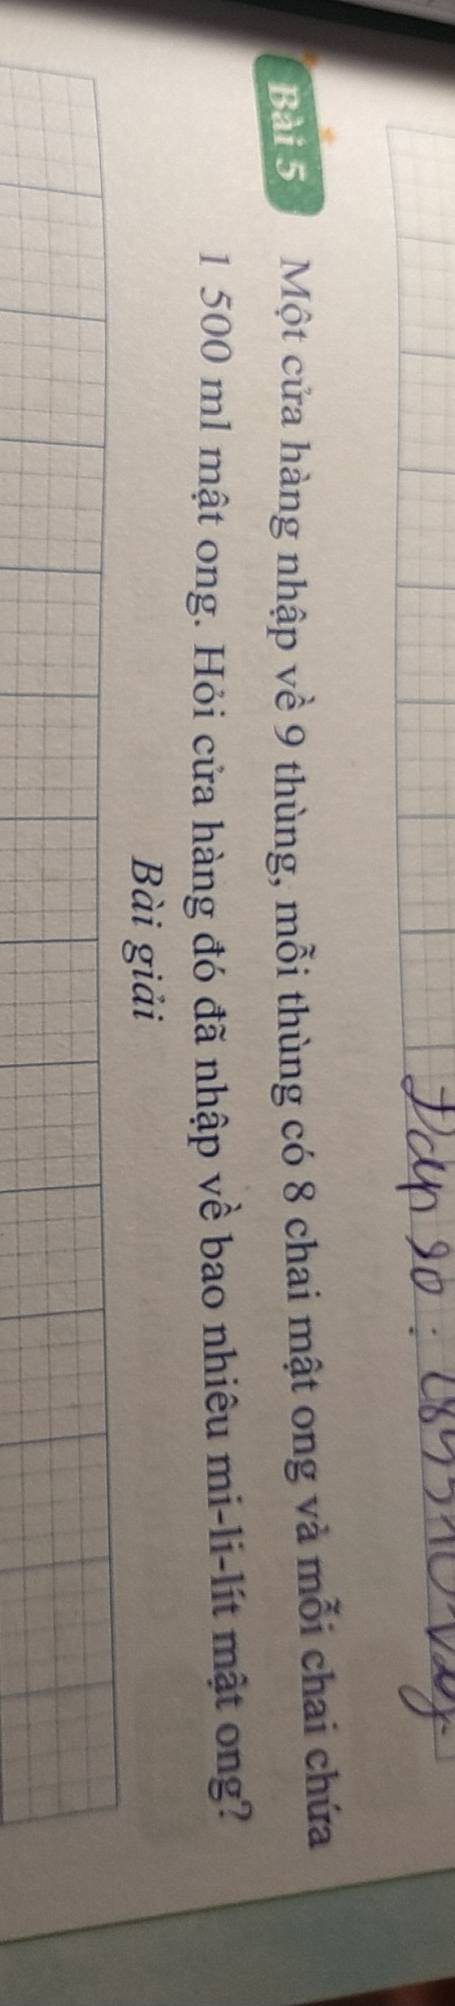 Bài 5 Một cửa hàng nhập về 9 thùng, mỗi thùng có 8 chai mật ong và mỗi chai chứa
1 500 ml mật ong. Hỏi cửa hàng đó đã nhập về bao nhiêu mi-li-lít mật ong?
Bài giải